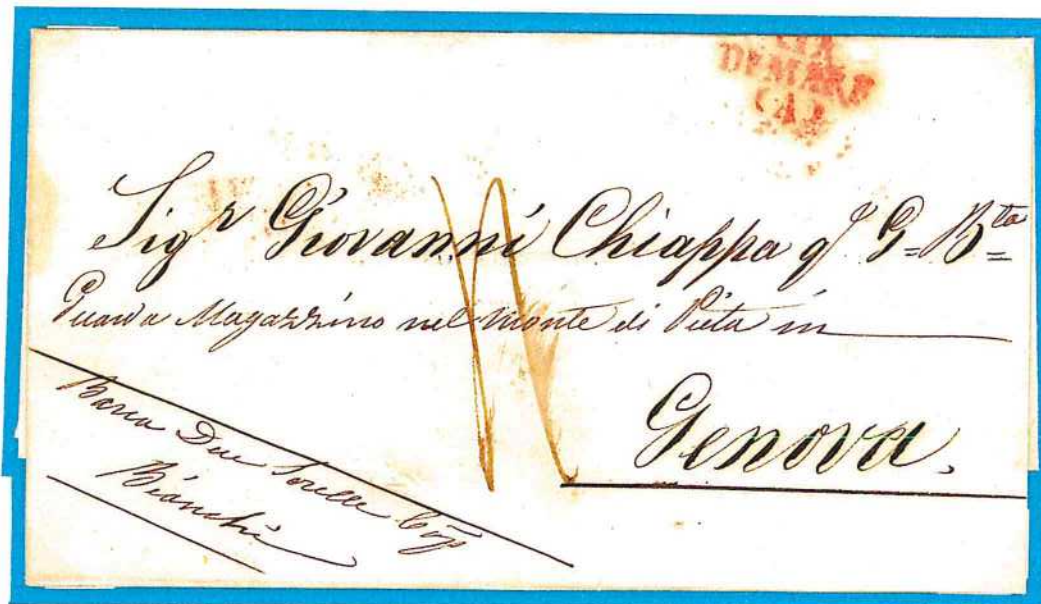 VIA
DI MARE
(A)
Sigr Giovanni Chiappa q. G. Bta
Guarda Magazzino nel Monte di Pieta in
Genova.
Barca Due Sorelle Cap
Bianchi